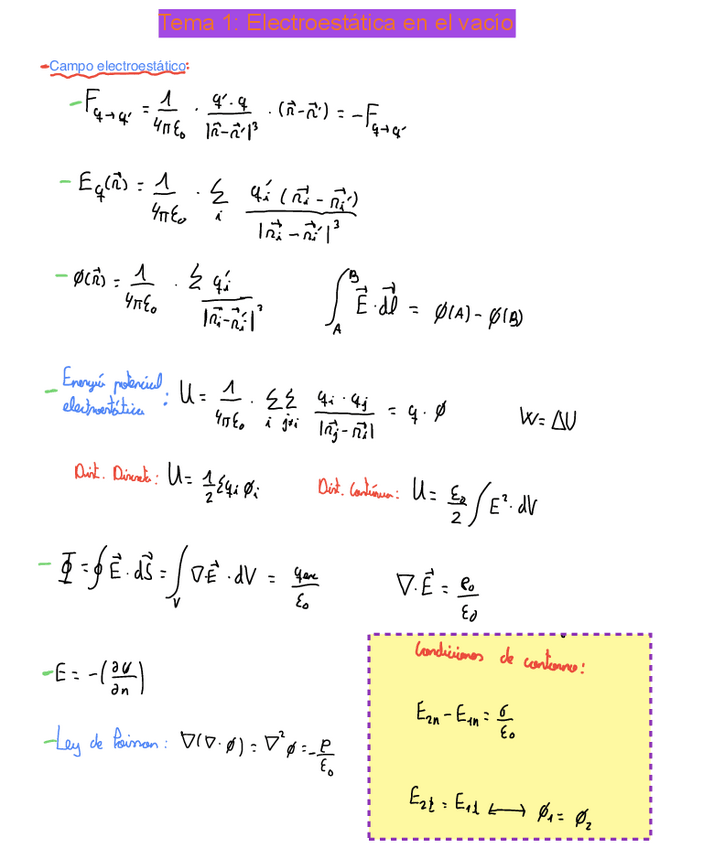 Tema 1: Electroestática en el vacío
-Campo electroestático:
- F_{q→q'} = 1/(4πε₀) · (q'·q)/|r⃗-r⃗'|³ · (r⃗-r⃗') = -F_{q→q'}
- E_q(r⃗) = 1/(4πε₀) · Σ_i q'_i (r⃗_i - r⃗'_i)/|r⃗_i - r⃗'_i|³
- ø(r⃗) = 1/(4πε₀) · Σ q'_i/|r⃗_i-r⃗'_i|² ∫_A^B E⃗·dl⃗ = ø(A) - ø(B)
- Energía potencial electroestática: U = 1/(4πε₀) · Σ_i Σ_{j≠i} (q_i · q_j)/|r⃗_j - r⃗_i| = q · ø W = ΔU
Dist. Discreta: U = 1/2 Σ q_i ø_i Dist. Contínua: U = ε₀/2 ∫ E² · dV
- Φ = ∮ E⃗ · dS⃗ = ∫_V ∇·E⃗ · dV = q_enc/ε₀ ∇·E⃗ = ρ₀/ε₀
Condiciones de contorno:
- E = -(∂U/∂n)
E_{2n} - E_{1n} = σ/ε₀
- Ley de Poisson: ∇(∇·ø) = ∇²ø = -ρ/ε₀
E_{2t} = E_{1t} ⟷ ø₁ = ø₂